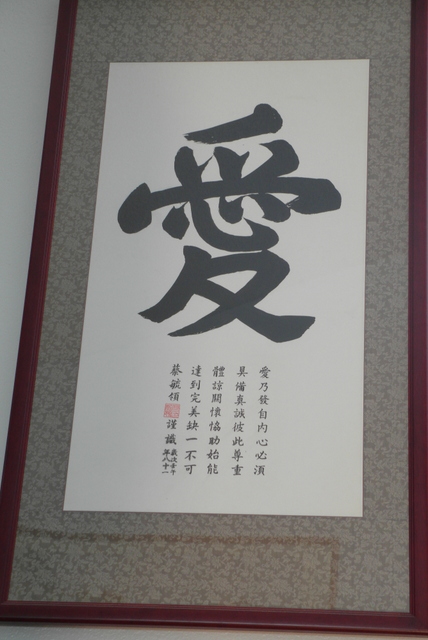 愛
愛乃發自內心必須
具備真誠彼此尊重
體諒關懷協助始能
達到完美缺一不可
蔡毓領 謹識
歲次壬午
年八十一